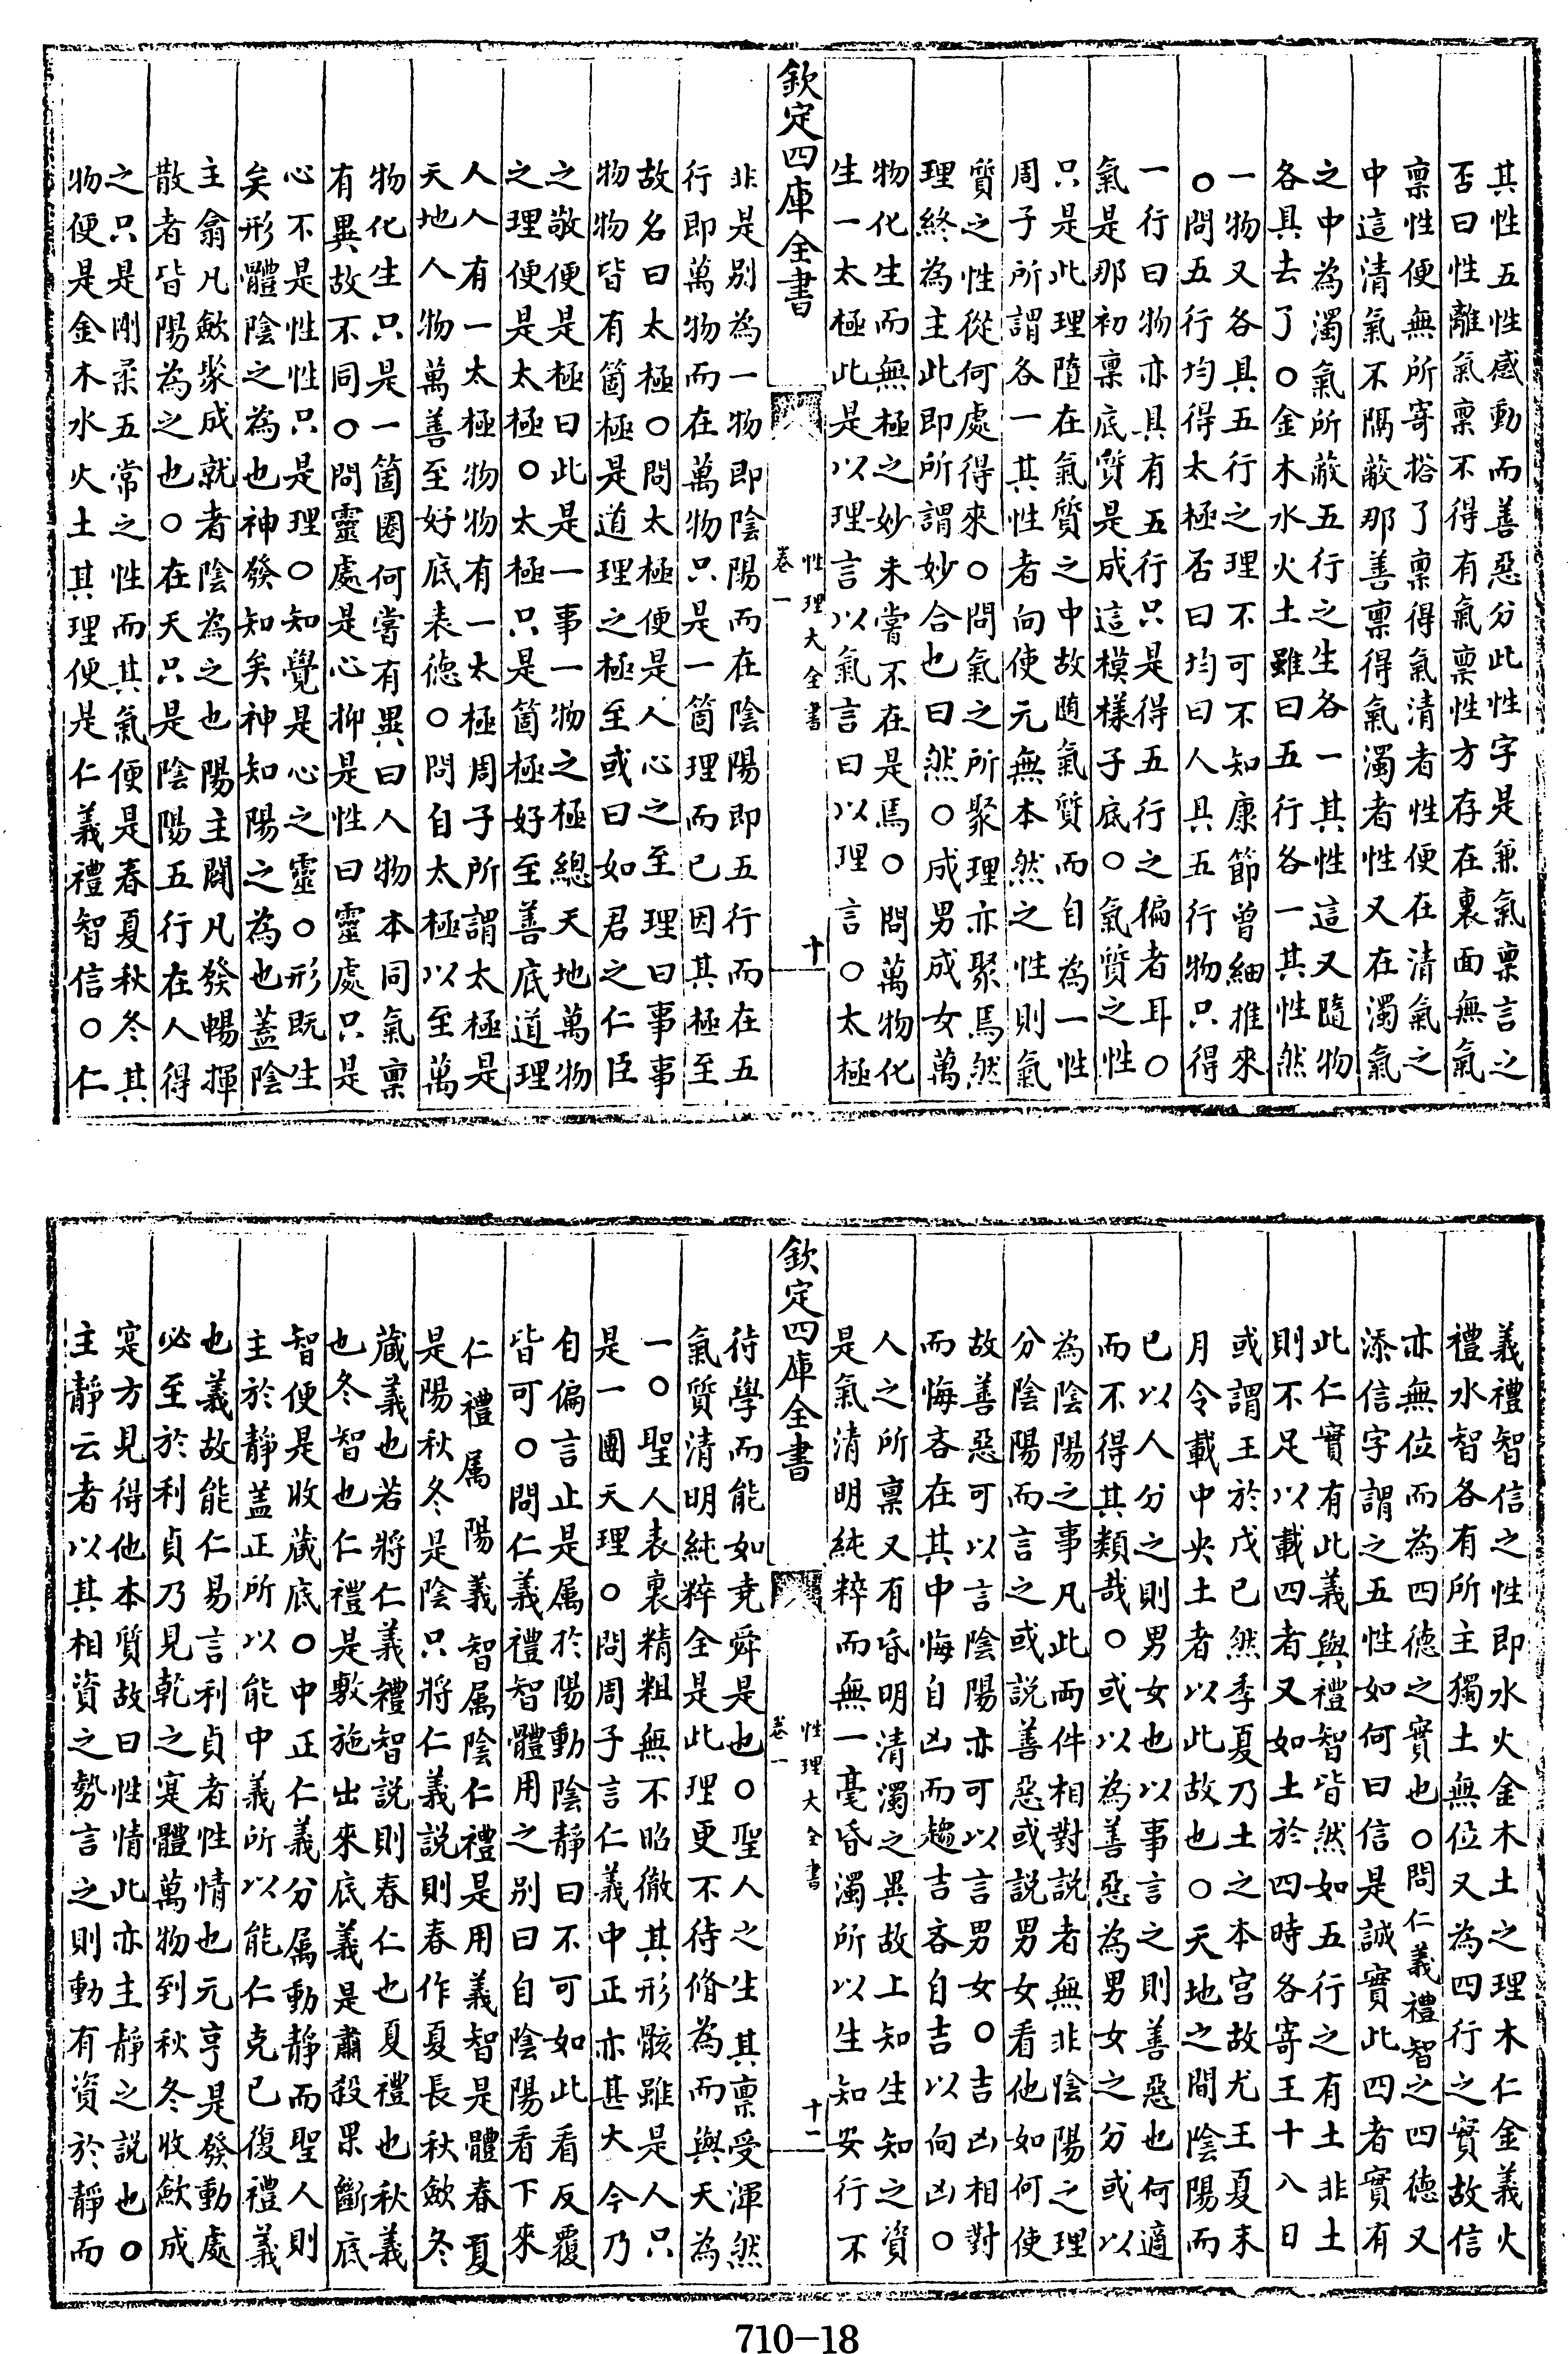 其性五性感動而善惡分此性字是兼氣稟言之
否曰性離氣稟不得有氣稟性方存在裏面無氣
稟性便無所寄搭了稟得氣清者性便在清氣之
中這清氣不隔蔽那善稟得氣濁者性又在濁氣
之中為濁氣所蔽五行之生各一其性這又隨物
各具去了○金木水火土雖曰五行各一其性然
一物又各具五行之理不可不知康節曾細推來
○問五行均得太極否曰均曰人具五行物只得
一行曰物亦具有五行只是得五行之偏者耳○
氣是那初稟底質是成這模樣子底○氣質之性
只是此理墮在氣質之中故随氣質而自為一性
周子所謂各一其性者向使元無本然之性則氣
質之性從何處得來○問氣之所聚理亦聚焉然
理終為主此即所謂妙合也曰然○成男成女萬
物化生而無極之妙未嘗不在是焉○問萬物化
生一太極此是以理言以氣言曰以理言○太極
欽定四庫全書
性理大全書
卷一
十
非是别為一物即陰陽而在陰陽即五行而在五
行即萬物而在萬物只是一箇理而已因其極至
故名曰太極○問太極便是人心之至理曰事事
物物皆有箇極是道理之極至或曰如君之仁臣
之敬便是極曰此是一事一物之極總天地萬物
之理便是太極○太極只是箇極好至善底道理
人人有一太極物物有一太極周子所謂太極是
天地人物萬善至好底表德○問自太極以至萬
物化生只是一箇圈何嘗有異曰人物本同氣稟
有異故不同○問靈處是心抑是性曰靈處只是
心不是性性只是理○知覺是心之靈○形既生
矣形體陰之為也神發知矣神知陽之為也蓋陰
主翕凡斂聚成就者陰為之也陽主闢凡發暢揮
散者皆陽為之也○在天只是陰陽五行在人得
之只是剛柔五常之性而其氣便是春夏秋冬其
物便是金木水火土其理便是仁義禮智信○仁
義禮智信之性即水火金木土之理木仁金義火
禮水智各有所主獨土無位又為四行之實故信
亦無位而為四德之實也○問仁義禮智之四德又
添信字謂之五性如何曰信是誠實此四者實有
此仁實有此義與禮智皆然如五行之有土非土
則不足以載四者又如土於四時各寄王十八日
或謂王於戊已然季夏乃土之本宫故尤王夏末
月令載中央土者以此故也○天地之間陰陽而
已以人分之則男女也以事言之則善惡也何適
而不得其類哉○或以為善惡為男女之分或以
為陰陽之事凡此两件相對説者無非陰陽之理
分陰陽而言之或説善惡或説男女看他如何使
故善惡可以言陰陽亦可以言男女○吉凶相對
而悔吝在其中悔自凶而趨吉吝自吉以向凶○
人之所稟又有昏明清濁之異故上知生知之資
是氣清明純粹而無一毫昏濁所以生知安行不
欽定四庫全書
性理大全書
卷一
十二
待學而能如堯舜是也○聖人之生其稟受渾然
氣質清明純粹全是此理更不待脩為而與天為
一○聖人表裏精粗無不昭徹其形骸雖是人只
是一團天理○問周子言仁義中正亦甚大今乃
自偏言止是属於陽動陰靜曰不可如此看反覆
皆可○問仁義禮智體用之别曰自陰陽看下來
仁禮属陽義智属陰仁禮是用義智是體春夏
是陽秋冬是陰只將仁義説則春作夏長秋斂冬
藏義也若將仁義禮智説則春仁也夏禮也秋義
也冬智也仁禮是敷施出來底義是肅殺果斷底
智便是收藏底○中正仁義分属動靜而聖人則
主於靜蓋正所以能中義所以能仁克已復禮義
也義故能仁易言利貞者性情也元亨是發動處
必至於利貞乃見乾之寔體萬物到秋冬收斂成
寔方見得他本質故曰性情此亦主靜之説也○
主靜云者以其相資之勢言之則動有資於靜而
710-18